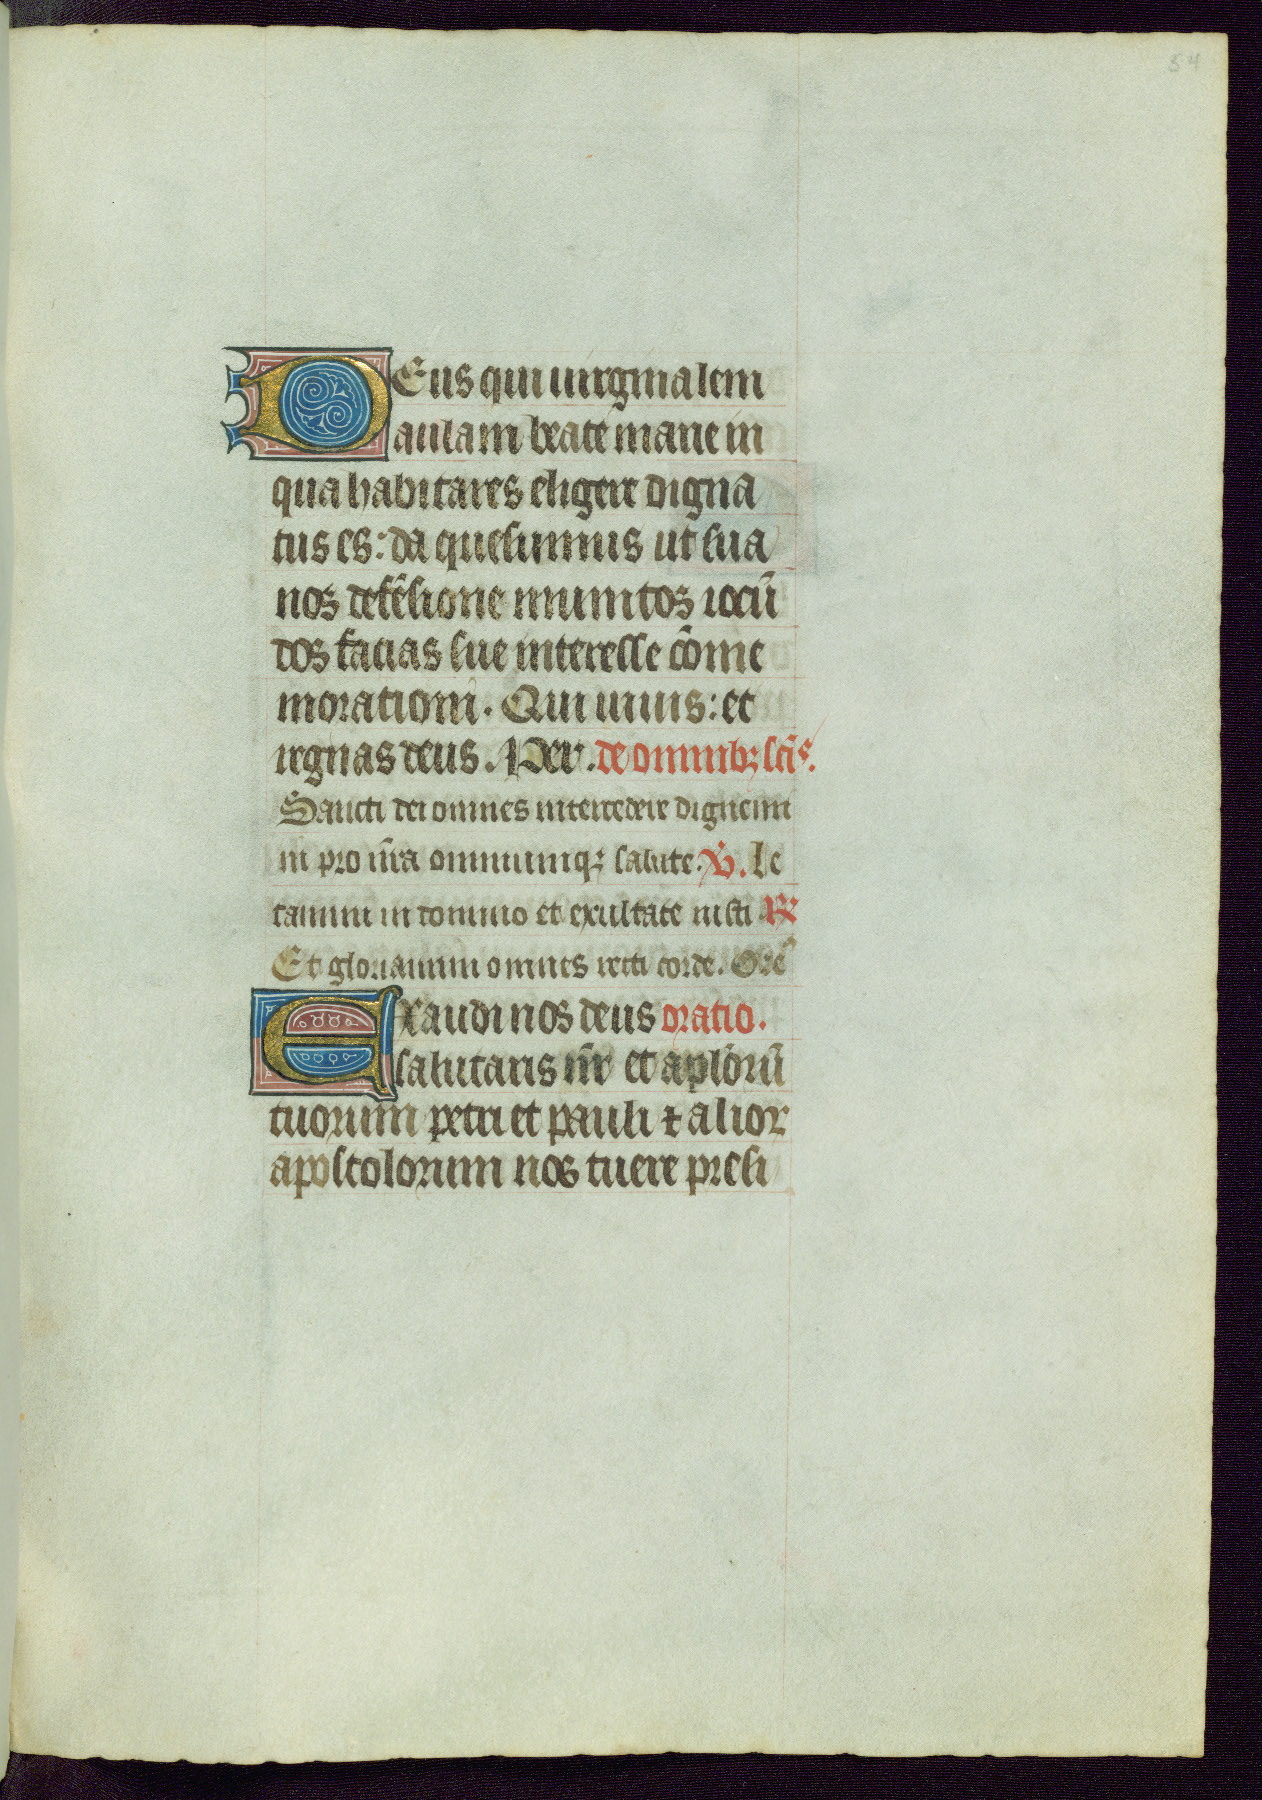 54
DEus qui uirginalem
aulam beate marie in
qua habitares eligere digna
tus es: da quesumus ut sua
nos defēsione munitos iocū
dos facias sue interesse cōme
morationi. Qui uiuis: et
regnas deus. Per. de omnibꝫ scīs.
Sancti dei omnes intercedere dignemi
ni pro nr̄a omniumqꝫ salute. ℣. Le
tamini in domino et exultate iusti ℟
Et gloriamini omnes recti corde. Orē
Exaudi nos deus oratio.
salutaris nr̄ et apl̄orū
tuorum petri et pauli ⁊ alior
apostolorum nos tuere presi